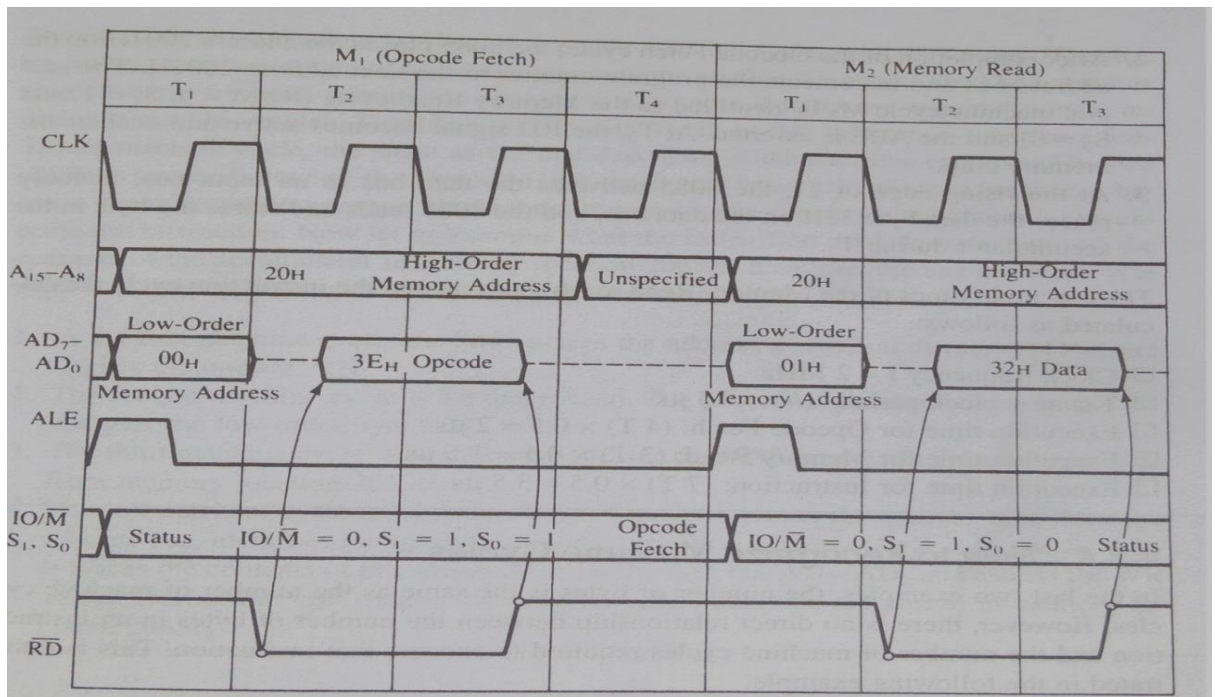 M₁ (Opcode Fetch) M₂ (Memory Read)
T₁ T₂ T₃ T₄ T₁ T₂ T₃
CLK
A₁₅–A₈ 20H High-Order Memory Address Unspecified 20H High-Order Memory Address
AD₇–AD₀ Low-Order 00H Memory Address 3EH Opcode Low-Order 01H Memory Address 32H Data
ALE
IO/M̅ S₁, S₀ Status IO/M̅ = 0, S₁ = 1, S₀ = 1 Opcode Fetch IO/M̅ = 0, S₁ = 1, S₀ = 0 Status
R̅D̅